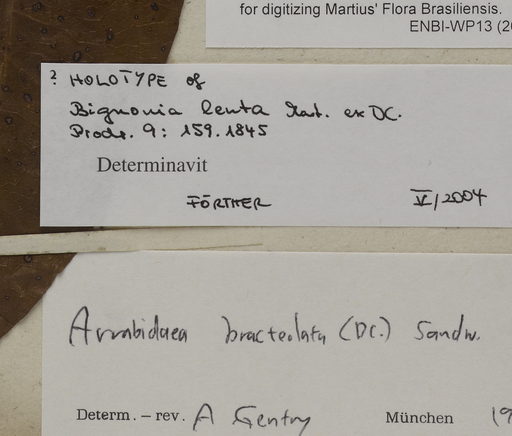 for digitizing Martius' Flora Brasiliensis.
ENBI-WP13 (20
? HOLOTYPE of
Bignonia lenta Mart. ex DC.
Prodr. 9: 159. 1845
Determinavit
FÖRTHER V/2004
Arrabidaea bracteolata (DC.) Sandw.
Determ. – rev. A Gentry München 19